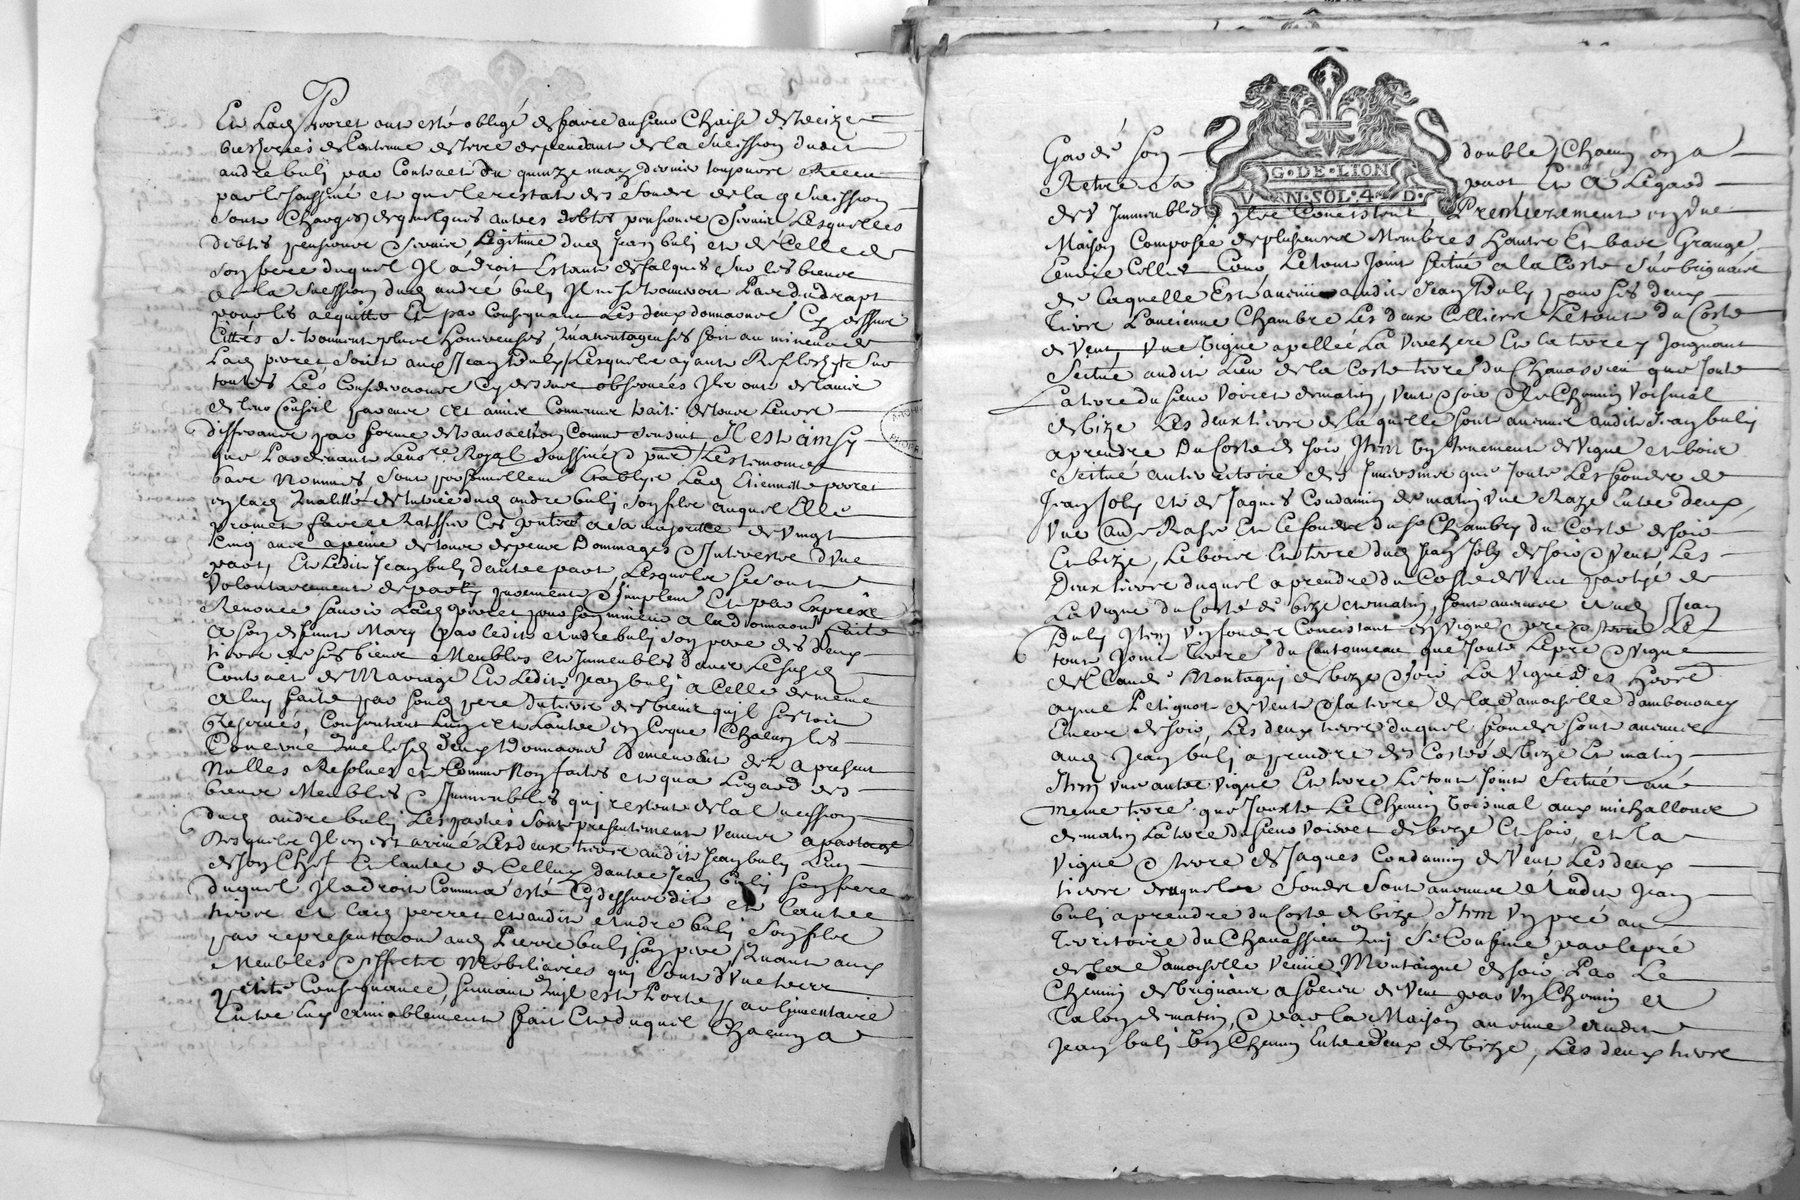 Et Lad Perret ont esté obligé de faire au sieur Chaise de treize
bicherées de Contenue de terre dependant de la Succession dudit
andré bulj par Contract du quinze may dernier toujours Receu
par le soussigné et que le restat des fondz de la d Succession
sont Chargés de quelques autres debtes pensions Servis Lesquelles
debtes pensions Servis Legitime dud Jean bulj et de Celle de
son frere duquel Il a droit Estant defalqués Sur les biens
de la Succession dud andré bulj Il ne se trouveroit
pour les acquitter Et par Consequant Les deux donnaons Cy dessus
Cittées Se trouvent plus honereuses, qu'avantageuses soit au mineur de
Lad perret, soit aud Jean bulj, Lesquels ayant Reflechy Sur
toutes Les Considerations Cy dessus observées Ils ont de l'avis
de leur Conseil parens et amis Communs traité de tous Leurs
differans par forme de transaction Comme s'ensuit, Il est ainsy
que Pardevant Le nore. Royal soussigné & pnt Les tesmoins
bas Nommés Sont personnellemt Etablys Lad Etiennette perret
en lad qualité de tutrice dud andre bulj son fils auquel Elle
promet faire Ratiffier Ces pntes a sa majorité de vingt
Cinq ans a peine de tous depens Dommages & Interestz d'Vne
part, Et Ledit Jean bulj d'autre part, Lesquels se sont
Volontairement departis purement & simplemt Et par Exprés
Renoncé sauoir Lad perret pour son mineur a la donnaon faite
a son defunt Mary par ledit Andre bulj son pere des deux
tiers de ses biens Meubles et Immeubles dans Le susd
Contract de Mariage Et Ledit Jean bulj a Celle de même
a luy faite par sond pere du tiers des biens qu'il s'estoit
Reservés, Consentant Lun et Lautre En Ce que Chacun les
Concerne que lesd deux Donnaons Demeurent dez a present
Nulles Resolues et Comme Non faites et qua Legard des
biens Meubles & Immeubles qui restent de la Succession
dud andre bulj Les parties sont presentement Venues a partage
Desquels Il en est arrivé Les deux tiers audit Jean bulj Lun
de son Chef Et lautre de Celluy dautre Jean bulj son frere
duquel Il a droit Comme a esté Cy dessus dit et Lautre
tiers et lad perret et audit Andre bulj son fils
par representaon aud Pierre bulj son pere, Quant aux
Meubles & effects Mobiliaires qui sont d'Vne tres
petite Consequance suivant quil est Porté par linventaire
Entre Eux amiablement fait Et duquel Chacun a
Gardé Son double, Chacun en a
Retiré Sa part Et A Legard
G·DE·LION
V N·SOL·4 D·
des Immeubles, Ils Concistent, Premierement en Vne
Maison Composée de plusieurs Membres Hauts Et bas Grange
Cuvier Cellier Cour Le tout Joint Scitué a la Coste Sur brignais
de Laquelle Est avenu audit Jean bulj pour ses deux
tiers L'ancienne Chambre Les deux Celliers Le tout du Coste
de Vent, Vne Vigne apellée La Et la terre y Joignant
Scitué audit Lieu de la Coste terre du Chanassieu que Joute
La terre du sieur Voiret de matin, Vent & soir & Le Chemin Voisinal
de bize Les deux tiers de laquelle sont avenus audit Jean bulj
a prendre Du Coste de soir Item Vn tenement de Vigne et bois
Scitué au territoire des que Joute Les fondz de
Jean Joly et de Jaques Condamin de matin Vne Raze Entre deux,
Vne autre Rase Et Le fondz du sr Chambry du Coste de soir
Et bize, Le bois Et terre dud Jean Joly de soir & Vent Les
Deux tiers duquel a prendre du Coste de Vent partyé de
La Vigne du Costé de bize et matin, sont avenus aud Jean
bulj Item Vn fondz Concistant en Vigne pré & terre Le
tout Joint terre du Cantonneau que Joute Le pré & Vigne
de Claude Montagny de bize & soir La Vigne des hoirs
ayme Petignot de Vent & La terre de la Damoiselle d'ambournay
Encor de soir, Les deux tiers duquel fondz sont avenus
aud Jean bulj a prendre des Costés de bize Et matin
Item Vne autre Vigne Et terre Le tout Joint Scitué au
meme terre que Jouxte Le Chemin Voisinal aux michallons
de matin La terre du sieur Voiret de bize Et soir, et la
Vigne & terre de Jaques Condamin de Vent Les deux
tiers desquels fondz sont avenus Audit Jean
bulj a prendre du Coste de bize Item Vn pré au
Territoire du Chanassieu qui Se Confine par le pré
de la Damoiselle Veuve Montaigne de soir Par Le
Chemin de brignais a de Vent par Vn Chemin et
Talon de matin, & par la Maison avenue audit
Jean bulj Vn Chemin Entre deux de bize, Les deux tiers